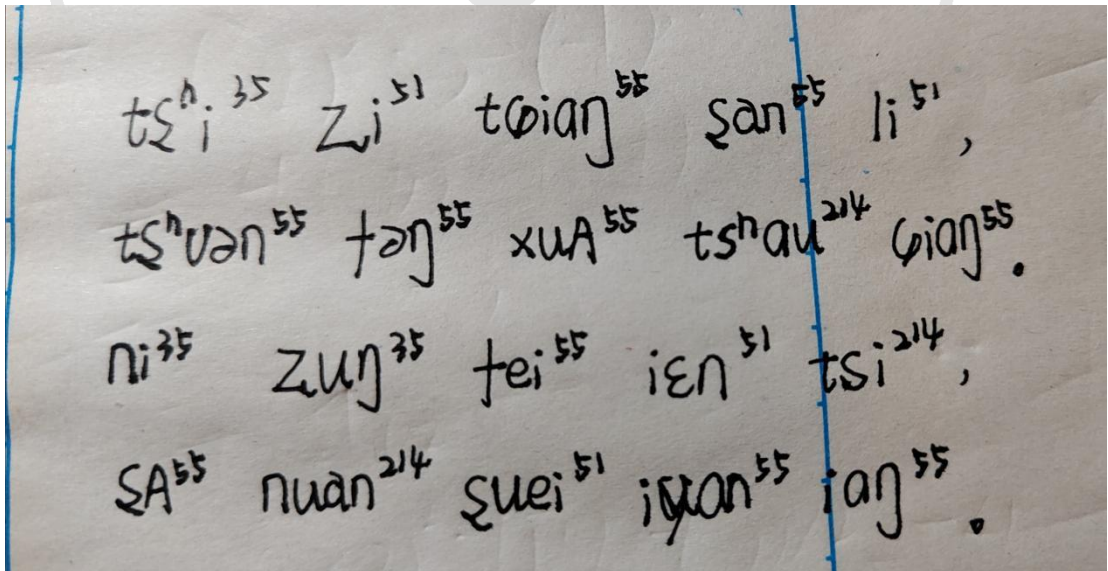 tʂʰi³⁵ ʐi⁵¹ tɕiaŋ⁵⁵ ʂan⁵⁵ li⁵¹,
tʂʰuən⁵⁵ fəŋ⁵⁵ xuA⁵⁵ tsʰau²¹⁴ ɕiaŋ⁵⁵.
ni³⁵ ʐuŋ³⁵ fei⁵⁵ iɛn⁵¹ tsi²¹⁴,
ʂA⁵⁵ nuan²¹⁴ ʂuei⁵¹ iyan⁵⁵ iaŋ⁵⁵。